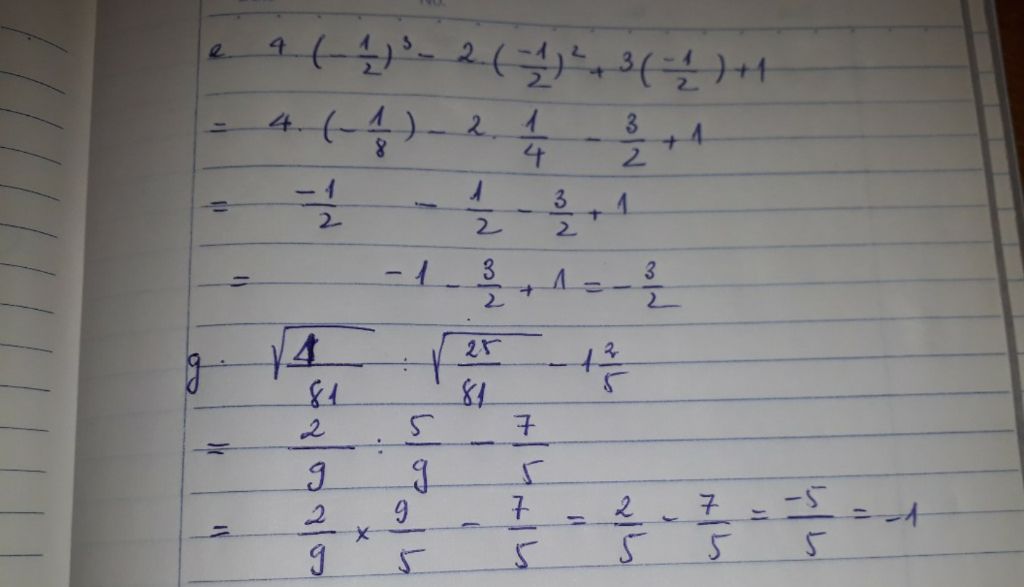 e 4.(-1/2)³ - 2.(-1/2)² + 3(-1/2)+1
= 4.(-1/8) - 2. 1/4 - 3/2 + 1
= -1/2 - 1/2 - 3/2 + 1
= -1 - 3/2 + 1 = - 3/2
g. √4/81 : √25/81 - 1 2/5
= 2/9 : 5/9 - 7/5
= 2/9 × 9/5 - 7/5 = 2/5 - 7/5 = -5/5 = -1